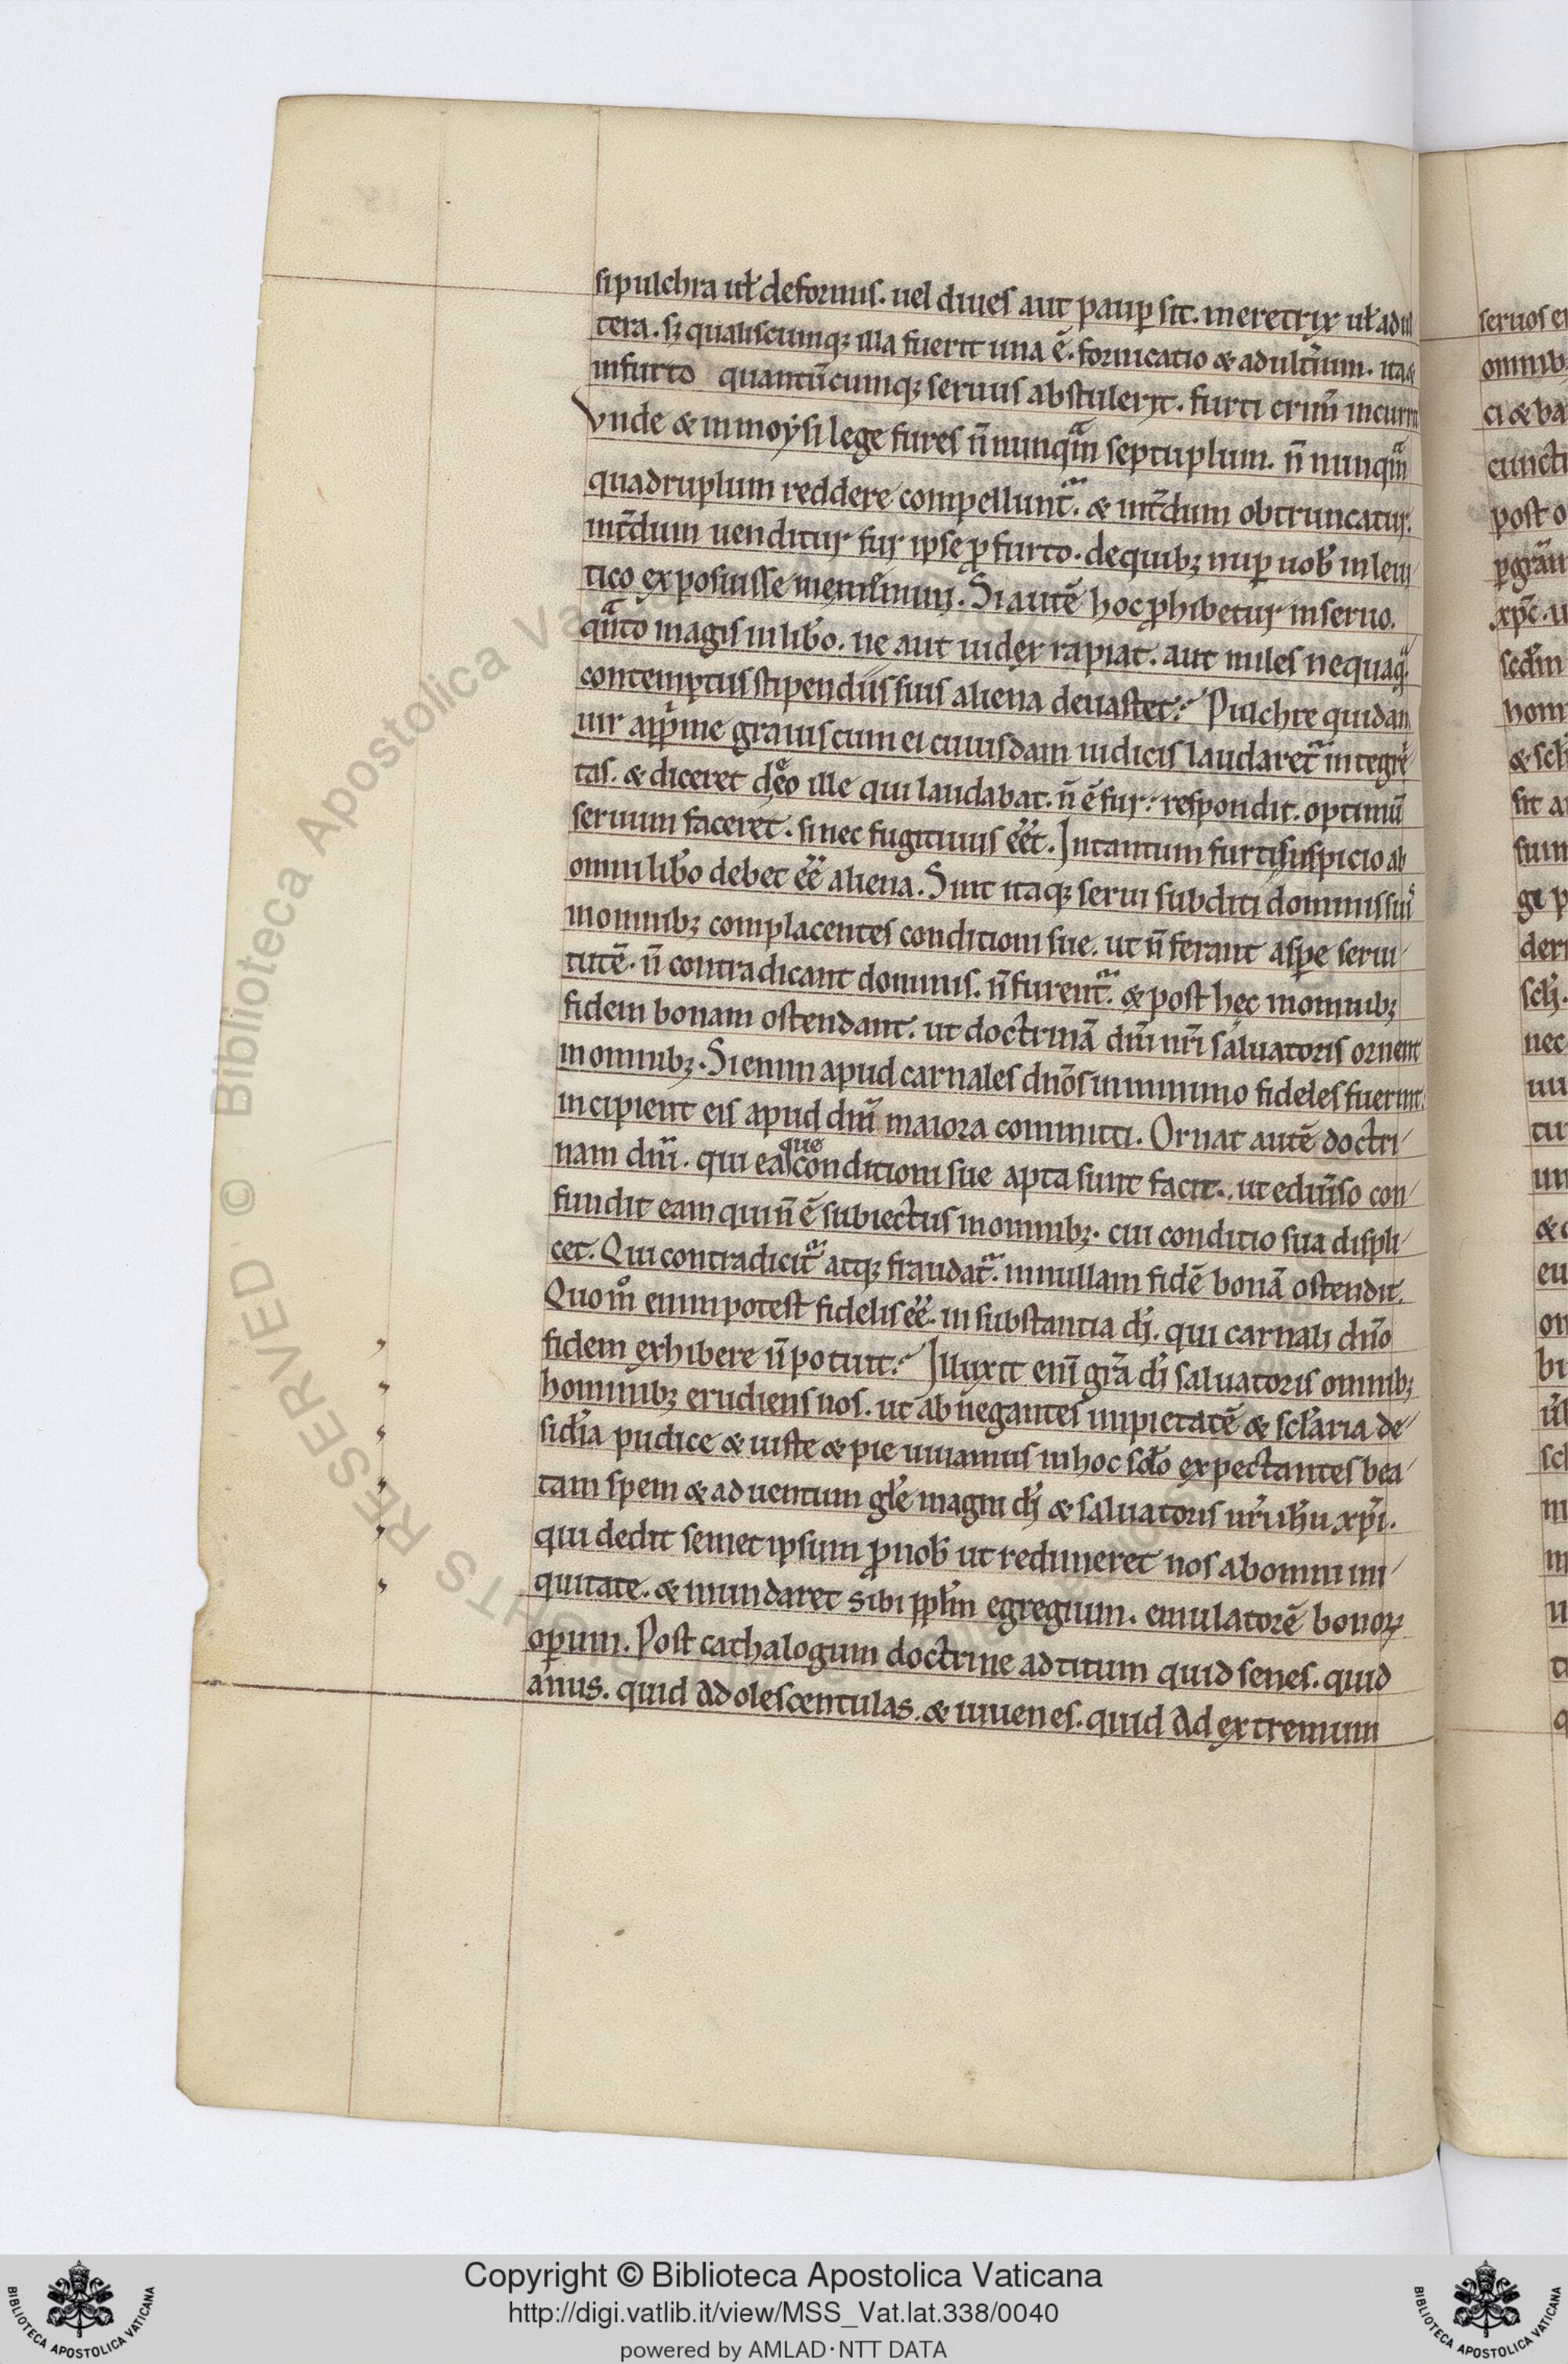 si pulchra ut̄ deformis. uel diues aut paup̱ sit. meretrix ut̄ adul
tera. sꝫ qualiscumqꝫ illa fuerit una ē. fornicatio & adult̄ium. ita &
in furto quantūcumqꝫ seruus abstulerit. furti crim̄ incurrit
Vnde & in moẏsi lege fures n̄ nunqᵃ̄m septuplum. n̄ nunqᵃ̄m
quadruplum reddere compellunt̄. & int̄dum obtruncatur.
int̄dum uenditur fur ipse ꝓ furto. de quibꝫ nup̱ uob̄ in leui
tico exposuisse meminimus. Si autē hoc ꝓhibetur in seruo.
qᵃ̄nto magis in lib̄o. ne aut iudex rapiat. aut miles nequaqᵃ̄.
contemptus stipendiis suis aliena deuastet? Pulchre quidam
uir appͥme grauis cum ei cuiusdam iudicis laudaret̄ integri
tas. & diceret de eo ille qui laudabat. n̄ ē fur. respondit. optimū
seruum faceret. si nec fugitiuus eēt. In tantum furti suspicio ab
omni lib̄o debet eē aliena. Sint itaqꝫ serui subditi dominis suis
in omnibꝫ complacentes conditioni sue. ut n̄ ferant asp̱e serui
tutē. n̄ contradicant dominis. n̄ furent̄. & post hec in omnibꝫ
fidem bonam ostendant. ut doctrinā dn̄i nr̄i saluatoris ornent
in omnibꝫ. Si enim apud carnales dn̄os in minimo fideles fuerint.
incipient eis apud dn̄m maiora committi. Ornat autē doctri
nam dn̄i. qui ea que conditioni sue apta sunt facit. ut e diu̓so con
fundit eam qui n̄ ē subiectus in omnibꝫ. cui conditio sua displi
cet. Qui contradicit̄ atqꝫ fraudat̄. in nullam fidē bonā ostendit.
Quom̊ enim potest fidelis eē. in substantia di̅. qui carnali dn̄o
fidem exhibere n̄ potuit? Illuxit enī gr̄a di̅ saluatoris omnibꝫ
hominibꝫ erudiens nos. ut abnegantes impietatē & scl̄aria de
sid̄ia pudice & iuste & pie uiuamus in hoc sc̄lo expectantes bea
tam spem & aduentum gl̄e magni di̅ & saluatoris nr̄i ih̄u xp̄i.
qui dedit semet ipsum ꝓ nob̄ ut redimeret nos ab omni ini
quitate. & mundaret sibi ppl̄m egregium. emulatorē bonoꝝ
op̱um. Post cathalogum doctrine ad titum quid senes. quid
anus. quid adolescentulas. & iuuenes. quid ad extremum
seruos
omnibꝫ
ci & ba
cuncti
post o
xp̄c. u
hom
& scl̄
sit a
sum
gi p
der
nec
cu
& c
eu
bi
Copyright © Biblioteca Apostolica Vaticana
http://digi.vatlib.it/view/MSS_Vat.lat.338/0040
powered by AMLAD·NTT DATA
BIBLIOTECA APOSTOLICA VATICANA
BIBLIOTECA APOSTOLICA VATICANA